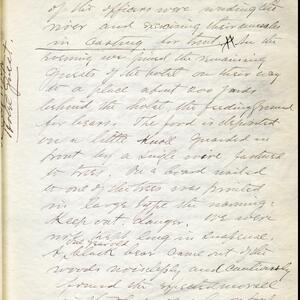 of the officers were wending the
river and exercising their muscles
in casting for trout. # In the
evening we joined the remaining
guests of the hotel on their way
to a place about 200 yards
behind the hotel, the feeding ground
for bears. The food is deposited
on a little knoll guarded in
front by a single wire fastened
to trees. On a board nailed
to one of the trees was printed
in large type the warning:
Keep out danger. We were
not kept long in suspense.
A black bear came out of the
woods noiselessly and cautiously
found the expected morsel
Hotel Guest.